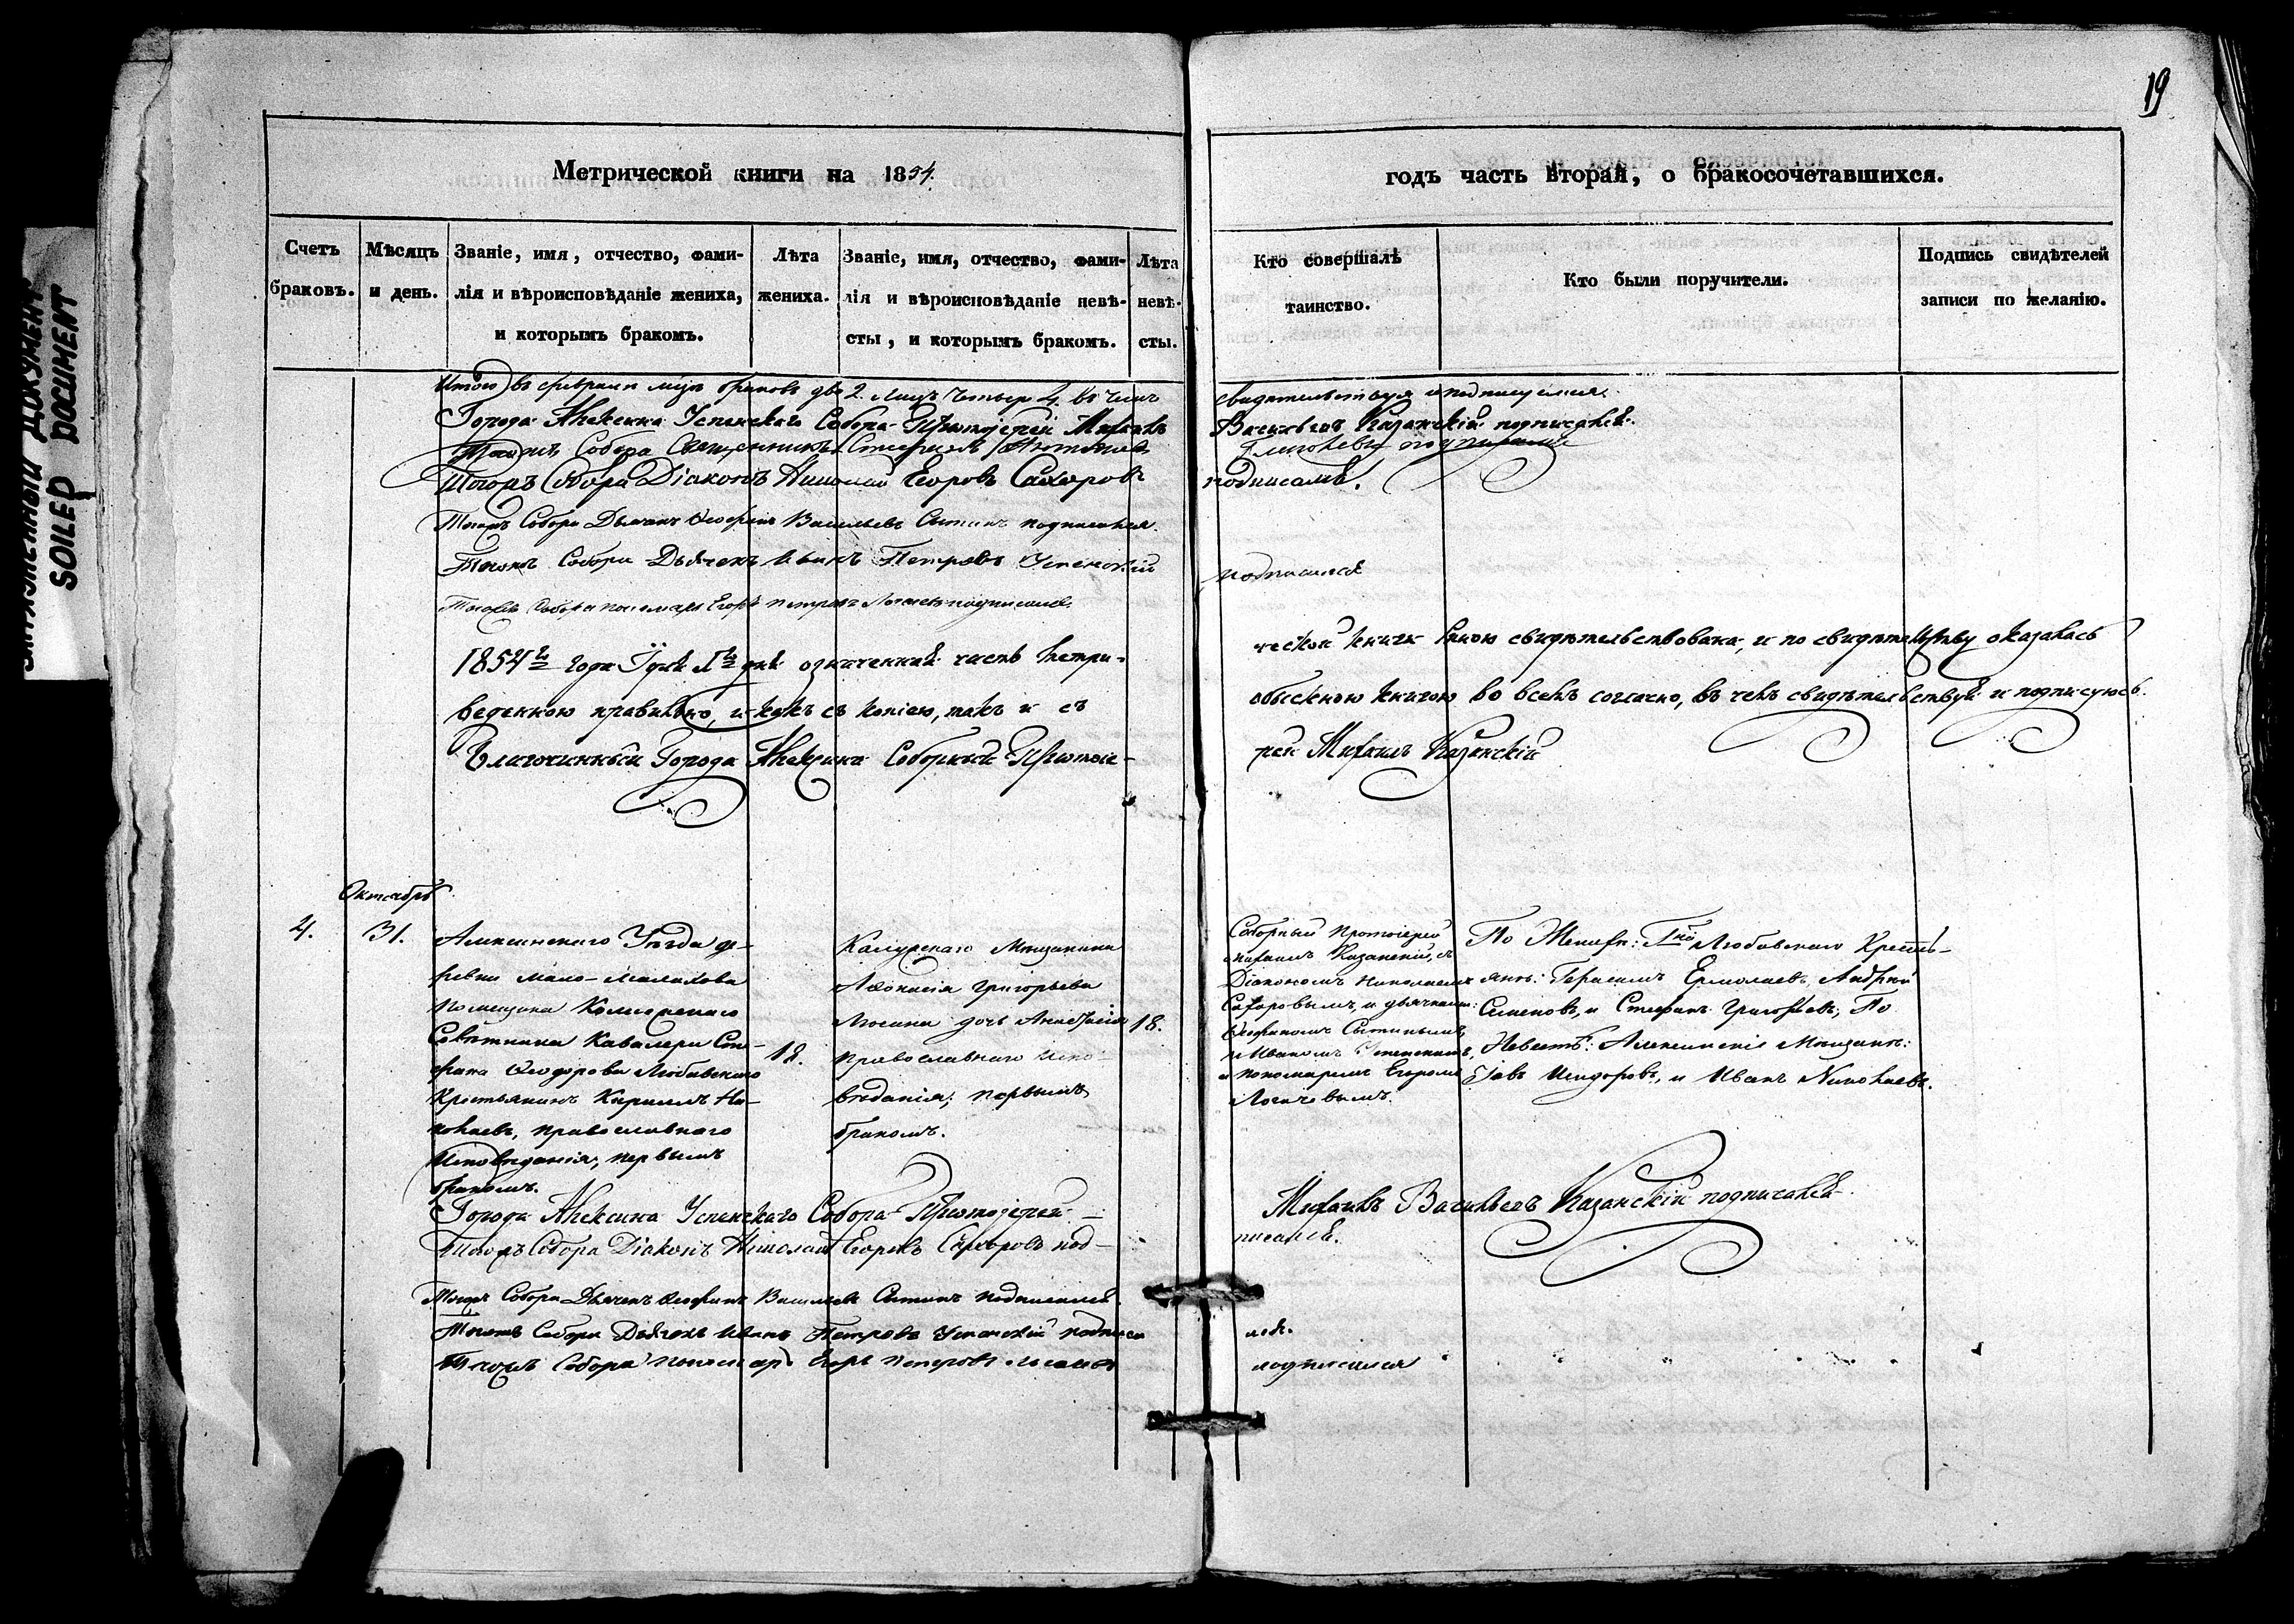 19
ЗАГРЯЗНЕННЫЙ ДОКУМЕНТ
SOILED DOCUMENT
Метрической книги на 1854.
годъ часть вторая, о бракосочетавшихся.
Счетъ браковъ.
Мѣсяцъ и день.
Званіе, имя, отчество, фами-
лія и вѣроисповѣданіе жениха,
и которымъ бракомъ.
Лѣта жениха.
Званіе, имя, отчество, фами-
лія и вѣроисповѣданіе невѣ-
сты, и которымъ бракомъ.
Лѣта невѣ-
сты.
Кто совершалъ
таинство.
Кто были поручители.
Подпись свидѣтелей
записи по желанію.
Итого въ феврале браковъ два 2. лицъ четыре 4. въ чемъ
свидетельствуя и подписуемся.
Города Алексина Успенскаго Собора Протоіерей Михаилъ
Васильевъ Казанскій подписался.
Тогожъ Собора Священникъ
Тогожъ Собора Діаконъ Николай Егоровъ Сахаровъ
подписался.
Тогожъ Собора Дьячекъ Ѳеофанъ Васильевъ Сытинъ подписался.
Тогожъ Собора Дьячекъ Иванъ Петровъ Успенскій
подписался
Тогожъ Собора пономарь Егоръ Петровъ подписался.
1854го года означенная часть метри-
ческой книги мною свидѣтельствована, и по свидѣтельству оказалась
веденною правильно, и какъ съ копіею, такъ и съ
обыскною книгою во всемъ согласно, въ чемъ свидѣтельствуя и подписуюсь.
Благочинный Города Алексина Соборный Протоіе-
рей Михаилъ Казанскій
Октябрь
4.
31.
Алексинскаго Уѣзда де-
ревни Мало-Малахова
помещика Колежскаго
Советника Кавалера Сте-
фана Ѳеодорова Любавскаго
Крестьянинъ Кириллъ Ни-
колаевъ, православнаго
исповеданія, первымъ
бракомъ.
18.
Калужскаго Мещанина
Аѳонасія Григорьева
дочь Анастасія
православнаго испо-
веданія, первымъ
бракомъ.
18.
Соборный Протоіерей
Михаилъ Казанскій, съ
Діакономъ Николаемъ
Сахаровымъ, и дьячками:
Ѳеофаномъ Сытинымъ,
и Иваномъ Успенскимъ,
и пономаремъ Егоромъ
По Женихе: Гна Любавскаго Кресть-
яне: Герасимъ Ермолаевъ, Андрей
Семеновъ, и Стефанъ Григорьевъ; По
Невесте: Алексинскіе Мещане:
Исидоровъ, и Иванъ Николаевъ.
Города Алексина Успенскаго Собора Протоіерей
Михаилъ Васильевъ Казанскій подписался
Тогожъ Собора Діаконъ Николай Егоровъ Сахаровъ под-
писался.
Тогожъ Собора Дьячекъ Ѳеофанъ Васильевъ Сытинъ подписался.
Тогожъ Собора Дьячекъ Иванъ Петровъ Успенскій подписа
лся.
Тогожъ Собора пономарь Егоръ Петровъ
подписался